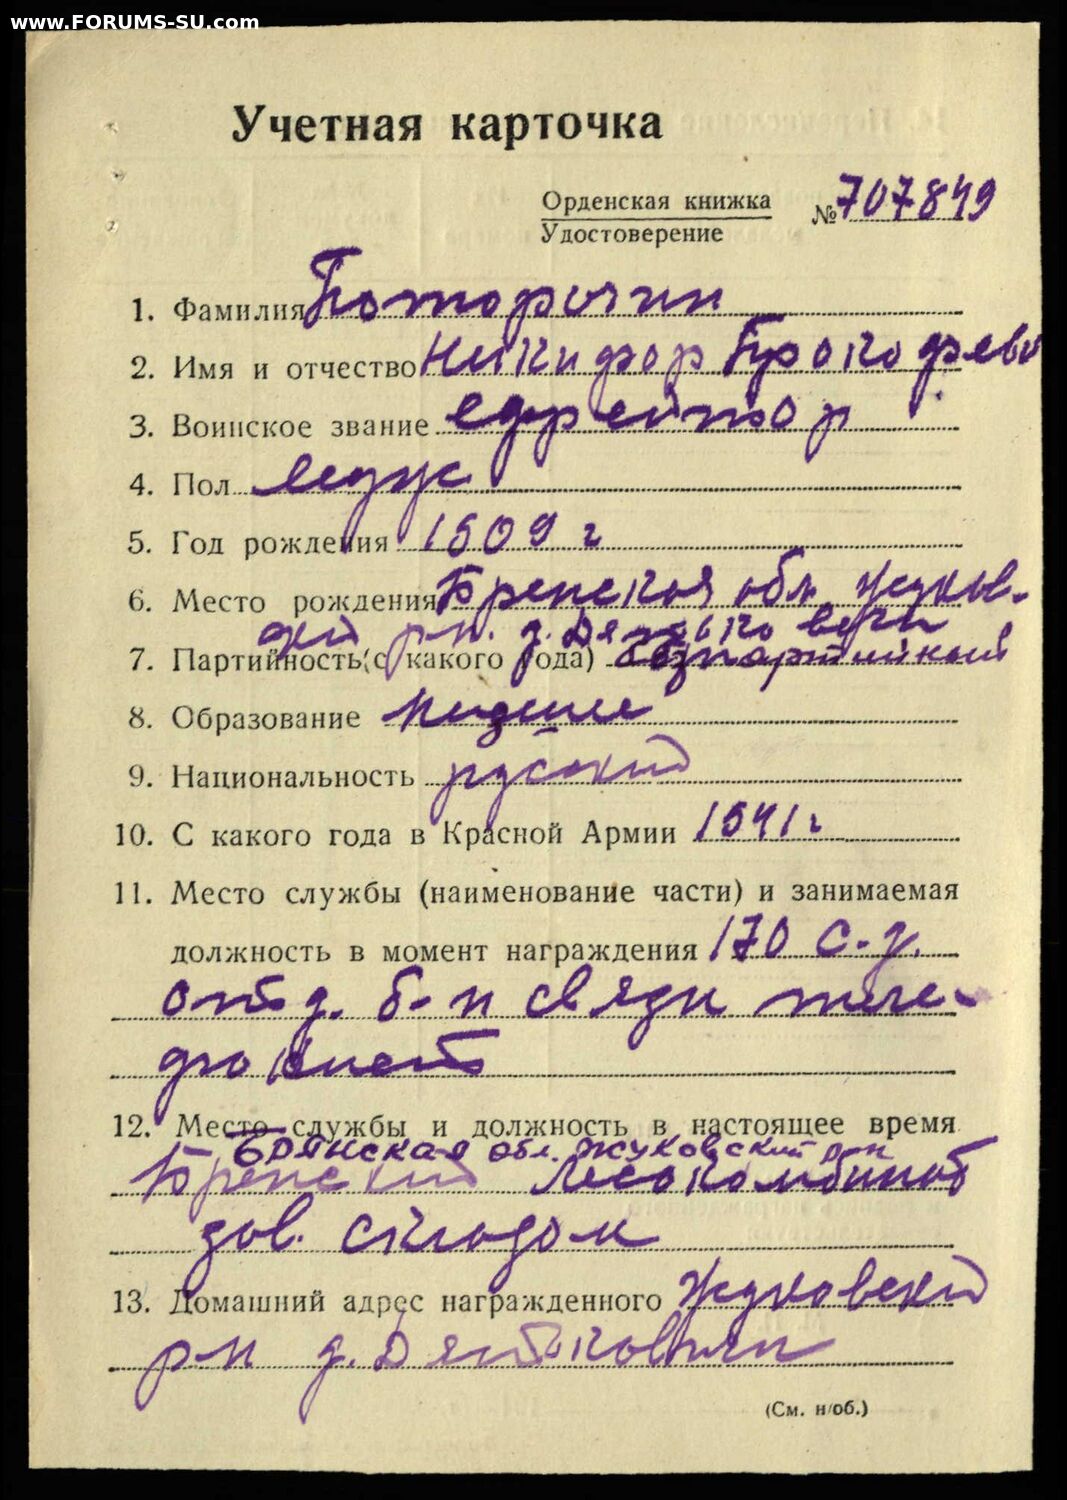 www.FORUMS-SU.com
Учетная карточка
Орденская книжка
Удостоверение
№ 707849
1. Фамилия
2. Имя и отчество Никифор Прокофьев
3. Воинское звание ефрейтор
4. Пол муж
5. Год рождения 1909 г
6. Место рождения обл. Жуков-
ский р-н. д.
7. Партийность (с какого года) безпартийный
8. Образование низшее
9. Национальность русский
10. С какого года в Красной Армии 1941 г
11. Место службы (наименование части) и занимаемая
должность в момент награждения 170 с.д.
отд. б-н связи теле-
фонист
12. Место службы и должность в настоящее время
Брянская обл. Жуковский р-н
Лесокомбинат
зав. складом
13. Домашний адрес награжденного Жуковский
р-н д.
(См. н/об.)